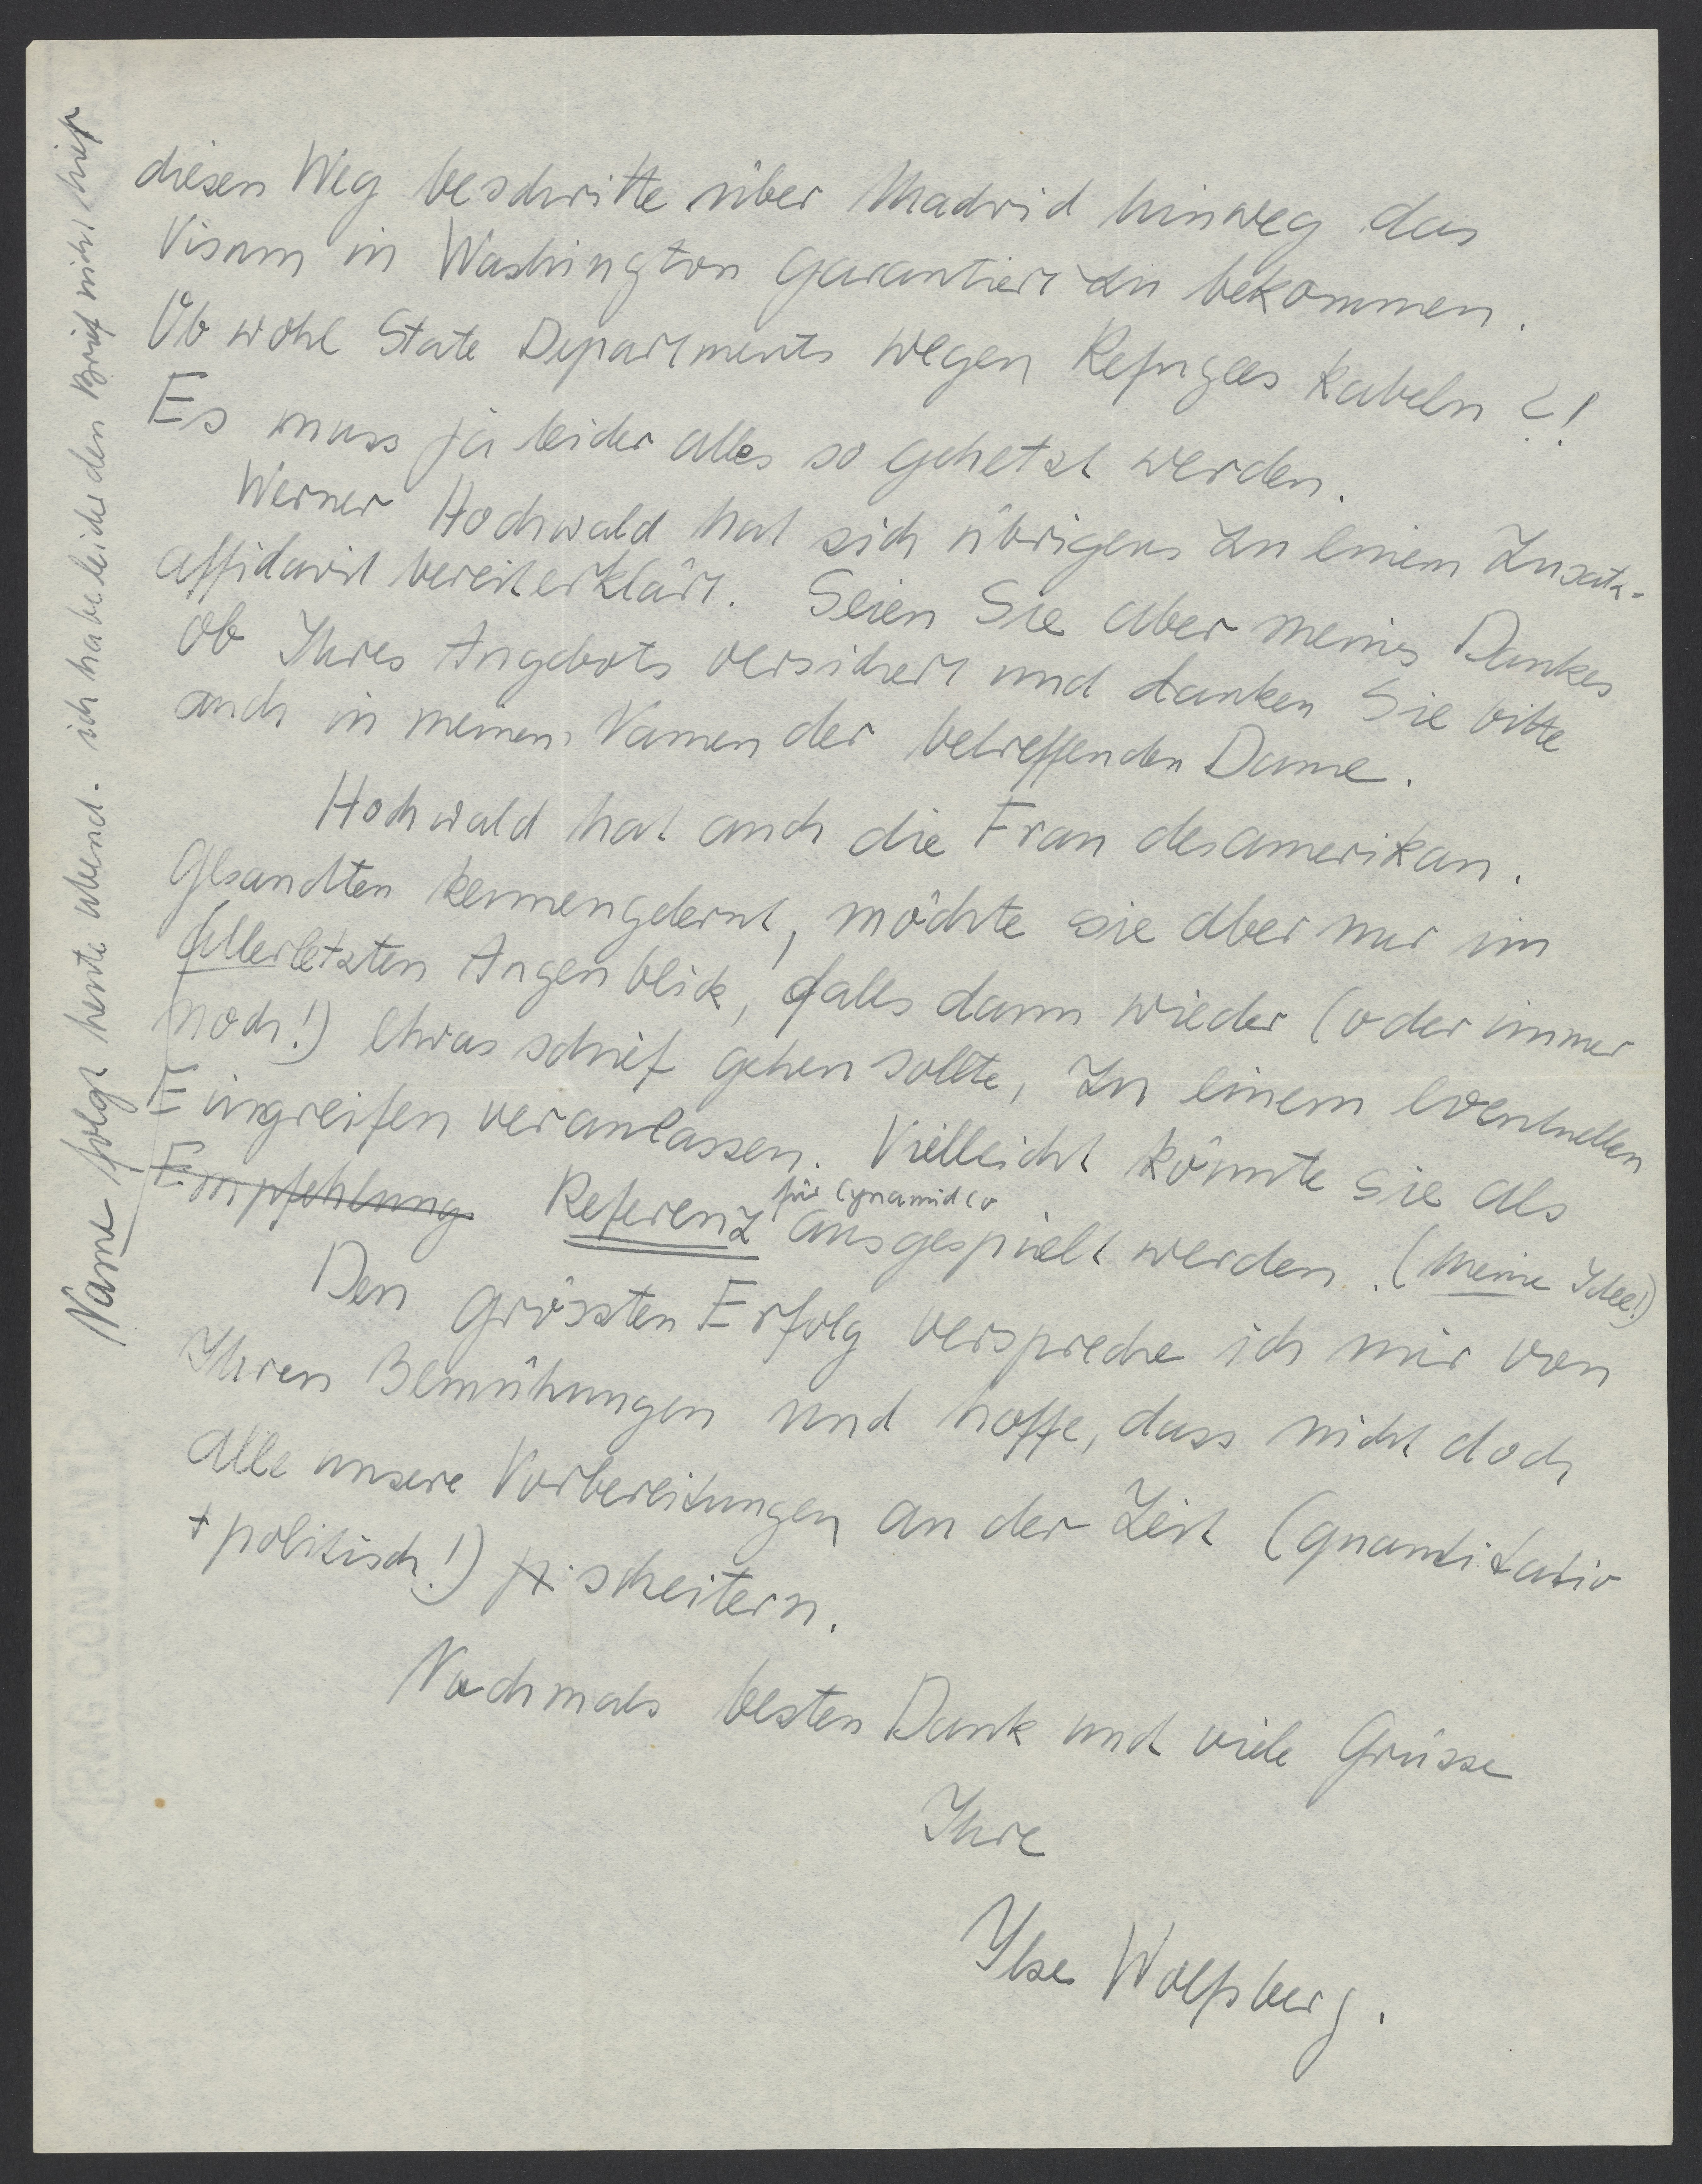 diesen Weg beschritte über Madrid hinweg das
Visum in Washington garantiert zu bekommen.
Ob wohl State Departments wegen Refugees kabeln ?!
Es muss ja leider alles so gehetzt werden.
Werner Hochwald hat sich übrigens zu einem Zusatz-
affidavit bereiterklärt. Seien Sie aber meines Dankes
ob Ihres Angebots versichert und danken Sie bitte
auch in meinem Namen der betreffenden Dame.
Hochwald hat auch die Frau des amerikan.
Gesandten kennengelernt, möchte sie aber nur im
allerletzten Augenblick, falls dann wieder (oder immer
noch!) etwas schief gehen sollte, zu einem eventuellen
Eingreifen veranlassen. Vielleicht könnte sie als
für Cynamid Co
Empfehlung Referenz ausgespielt werden. (meine Idee!)
Den grössten Erfolg verspreche ich mir von
Ihren Bemühungen und hoffe, dass nicht doch
alle unsere Vorbereitungen an der Zeit (quantitativ
+ politisch!) scheitern.
Nochmals besten Dank und viele Grüsse
Ihre
Ilse Wolfsberg.
Name folgt heute abend. ich habe leider den Brief nicht hier